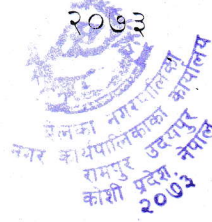 २०७३
बेलका नगरपालिका
नगर कार्यपालिकाको कार्यालय
रामपुर उदयपुर
कोशी प्रदेश, नेपाल
२०७३